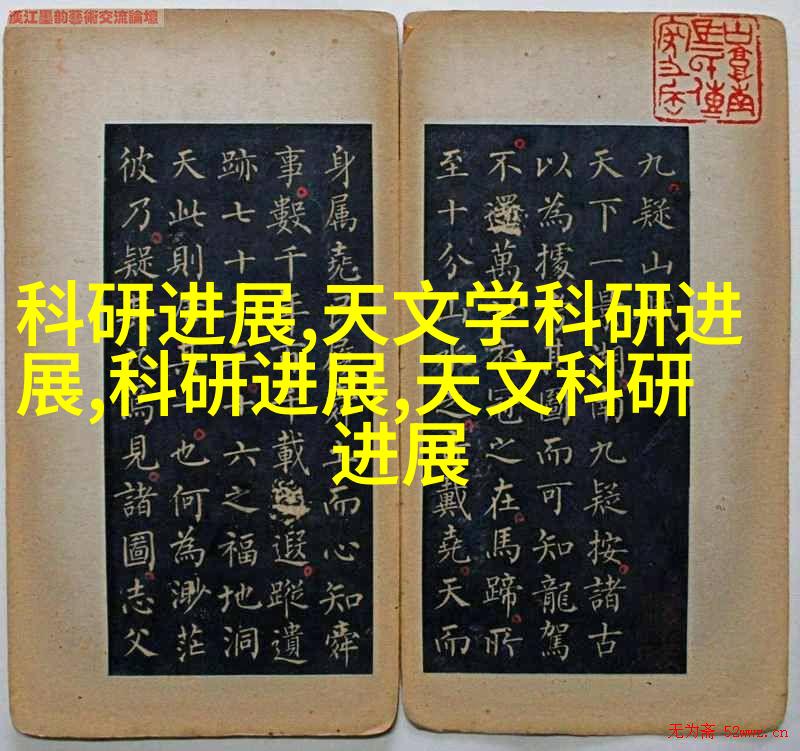 漢江墨韵藝術交流論壇
科研进展,天文学科研进
展,科研进展,天文科研
进展
九疑山賦
天下一南九疑按諸古
以為據其圖而可知龍駕
不還萬衣冠之在馬蹄所
至十分山之戴堯天而
身属堯而心知舜
事數千年載遐蹤遺
跡七十二十六之福地洞
天此則也何為渺茫
彼乃疑其為見諸圖志父
无为斋 52wwz.cn